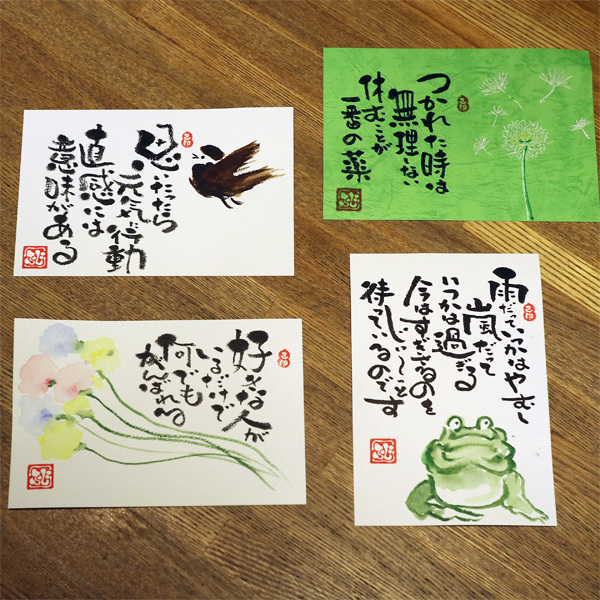 思いたったら
元気に行動
直感には
意味がある
つかれた時は
無理しない
休むことが
一番の薬
好きな人が
いるだけで
何でも
がんばれる
雨だっていつかはやむし
嵐だって
いつかは過ぎる
今はすぎさるのを
じぃ〜っと
待っているのです